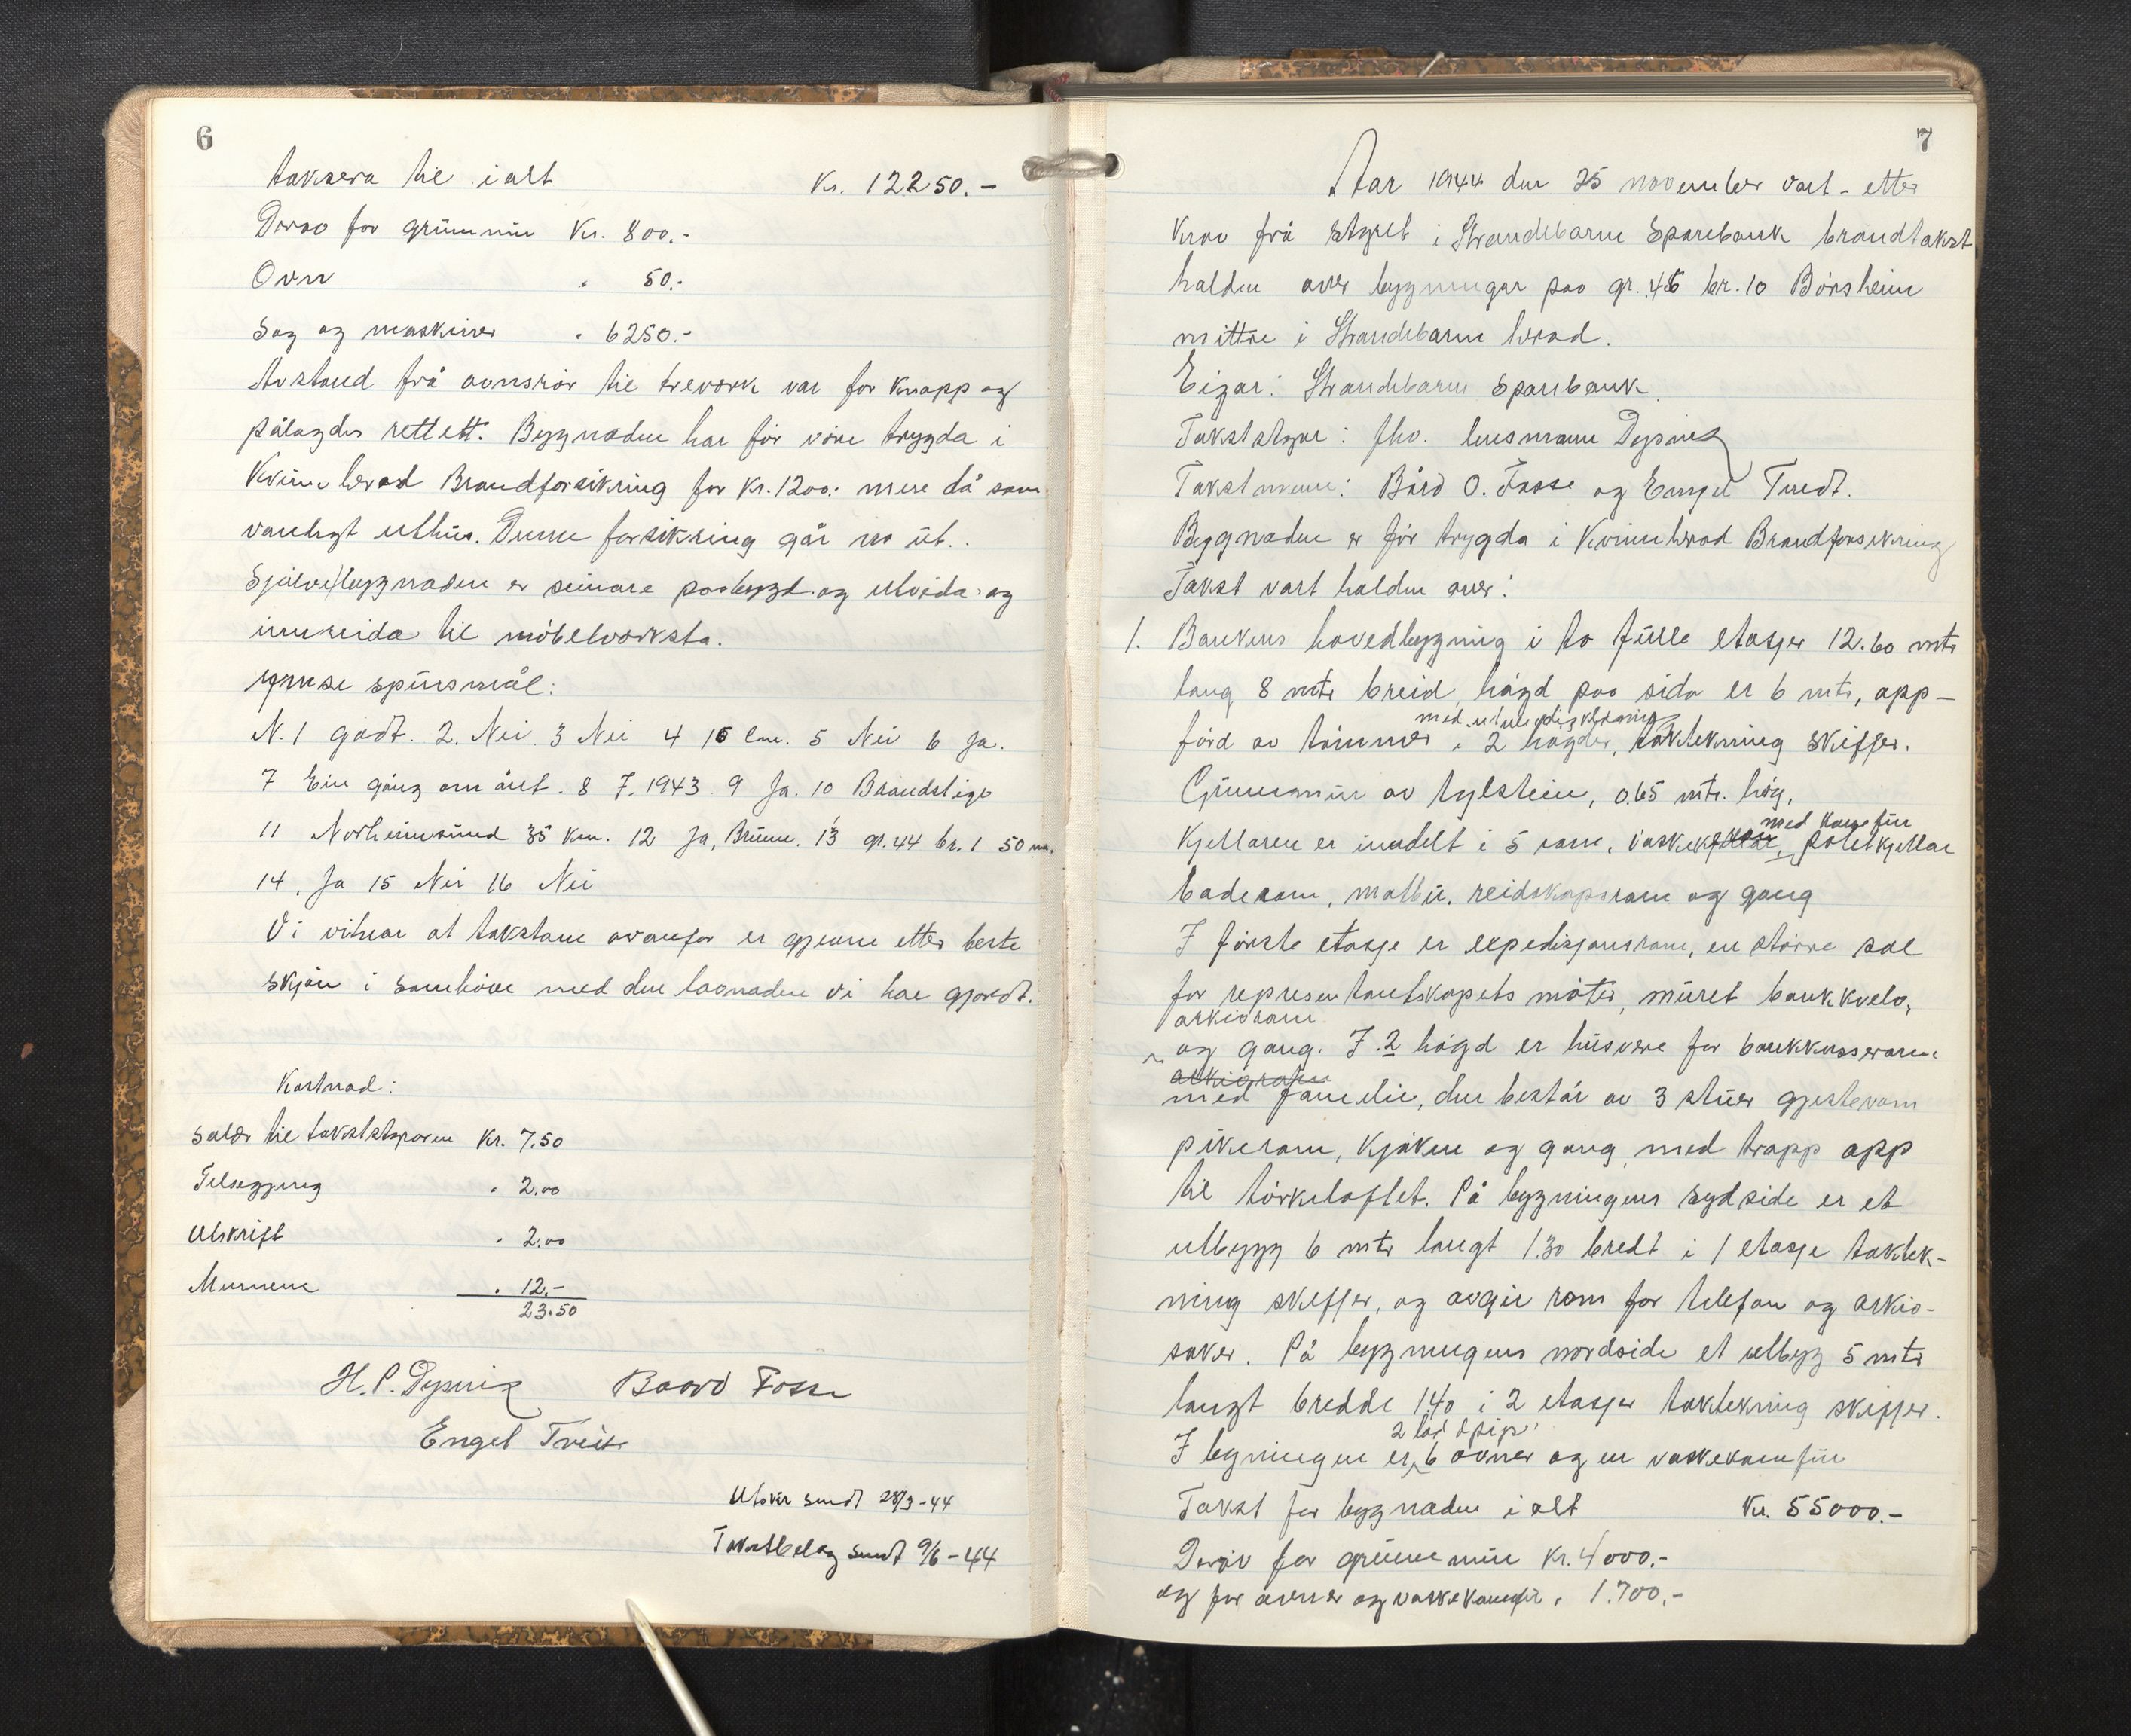 6
taksera til i alt Kr. 12250.-
Derav for grunnmur Kr. 800.-
Ovn " 50.-
Sag og maskiner " 6250.-
Avstand frå ovnsrör til treverk var for knapp og
pålagdes rettett. Bygnaden har för vore trygda i
Kvinnherad Brandforsikring for Kr. 1200.- mere då som
vanlegt uthus. Denne forsikring går no ut.
Sjølve bygnaden er seinare påbygd og utvida og
innreida til möbelverksta.
Ymse spursmål:
N. 1 godt. 2. Nei. 3 Nei 4 15 cm. 5 Nei 6 Ja.
7 Ein gang om året. 8 7. 1943. 9 Ja. 10 Brandstige
11 Norheimsund 35 km. 12 Ja, Brunn. 13 gr. 44 br. 1 50 m.
14. Ja 15 Nei 16 Nei
Vi vitnar at takstane ovanfor er gjevne etter beste
skjön i samhöve med den lovnaden vi har gjordt.
Kostnad:
Salær til takststyraren Kr. 7.50
Tilseggjing " 2.00
Utskrift " 2.00
Mennene " 12.-
23.50
H. P. Dysvik Baard Fosse
Engel Tveit
Utskr sendt 28/3-44
Takstbelag sendt 9/6-44
7
Aar 1944 den 25 november vart - etter
krav frå styret i Strandebarm Sparebank brandtakst
halden over bygningar på gr. 45 br. 10 Börsheim
mittre i Strandebarm herad.
Eigar: Strandebarm Sparebank.
Takststyrar: fhv. lensmann Dysvik
Takstmenn: Bård O. Fosse og Engel Tvedt.
Bygnaden er för trygda i Kvinnherad Brandforsikring
Takst vart halden over:
1. Bankens hovedbygning i to fulle etasjer 12.60 mtr
lang 8 mtr breid högd på sida er 6 mtr, opp-
med utvendig kledning
förd av tömmer i 2 högder, taktekning skiffer.
Grunnmur av sylstein, 0.65 mtr. hög.
med kamfür
Kjellaren er inndelt i 5 rom, vaskekjellar, potetkjellar
baderom, matbu, reidskapsrom og gang
I förste etasje er expedisjonsrom, en större sal
for representantskapets möter, muret bankkvelv,
arkivrom
og gang. I 2 högd er husvære for bankkasseraren
arkivrom
med familie, den består av 3 stuer gjesterom
pikerom, kjöken og gang med trapp opp
til törkeloftet. På bygningens sydside er et
utbygg 6 mtr langt 1.30 bredt i 1 etasje taktek-
ning skiffer, og avgir rom for telefon og arkiv-
saker. På bygningens nordside et utbyg 5 mtr
langt bredde 1.40 i 2 etasjer taktekning skiffer.
I bygningen er 6 ovner og en vaskekamfür
Takst for bygnaden i alt Kr. 55000.-
Derav for grunnmur Kr. 4000.-
og for ovner og vaskekamfür " 1.700.-